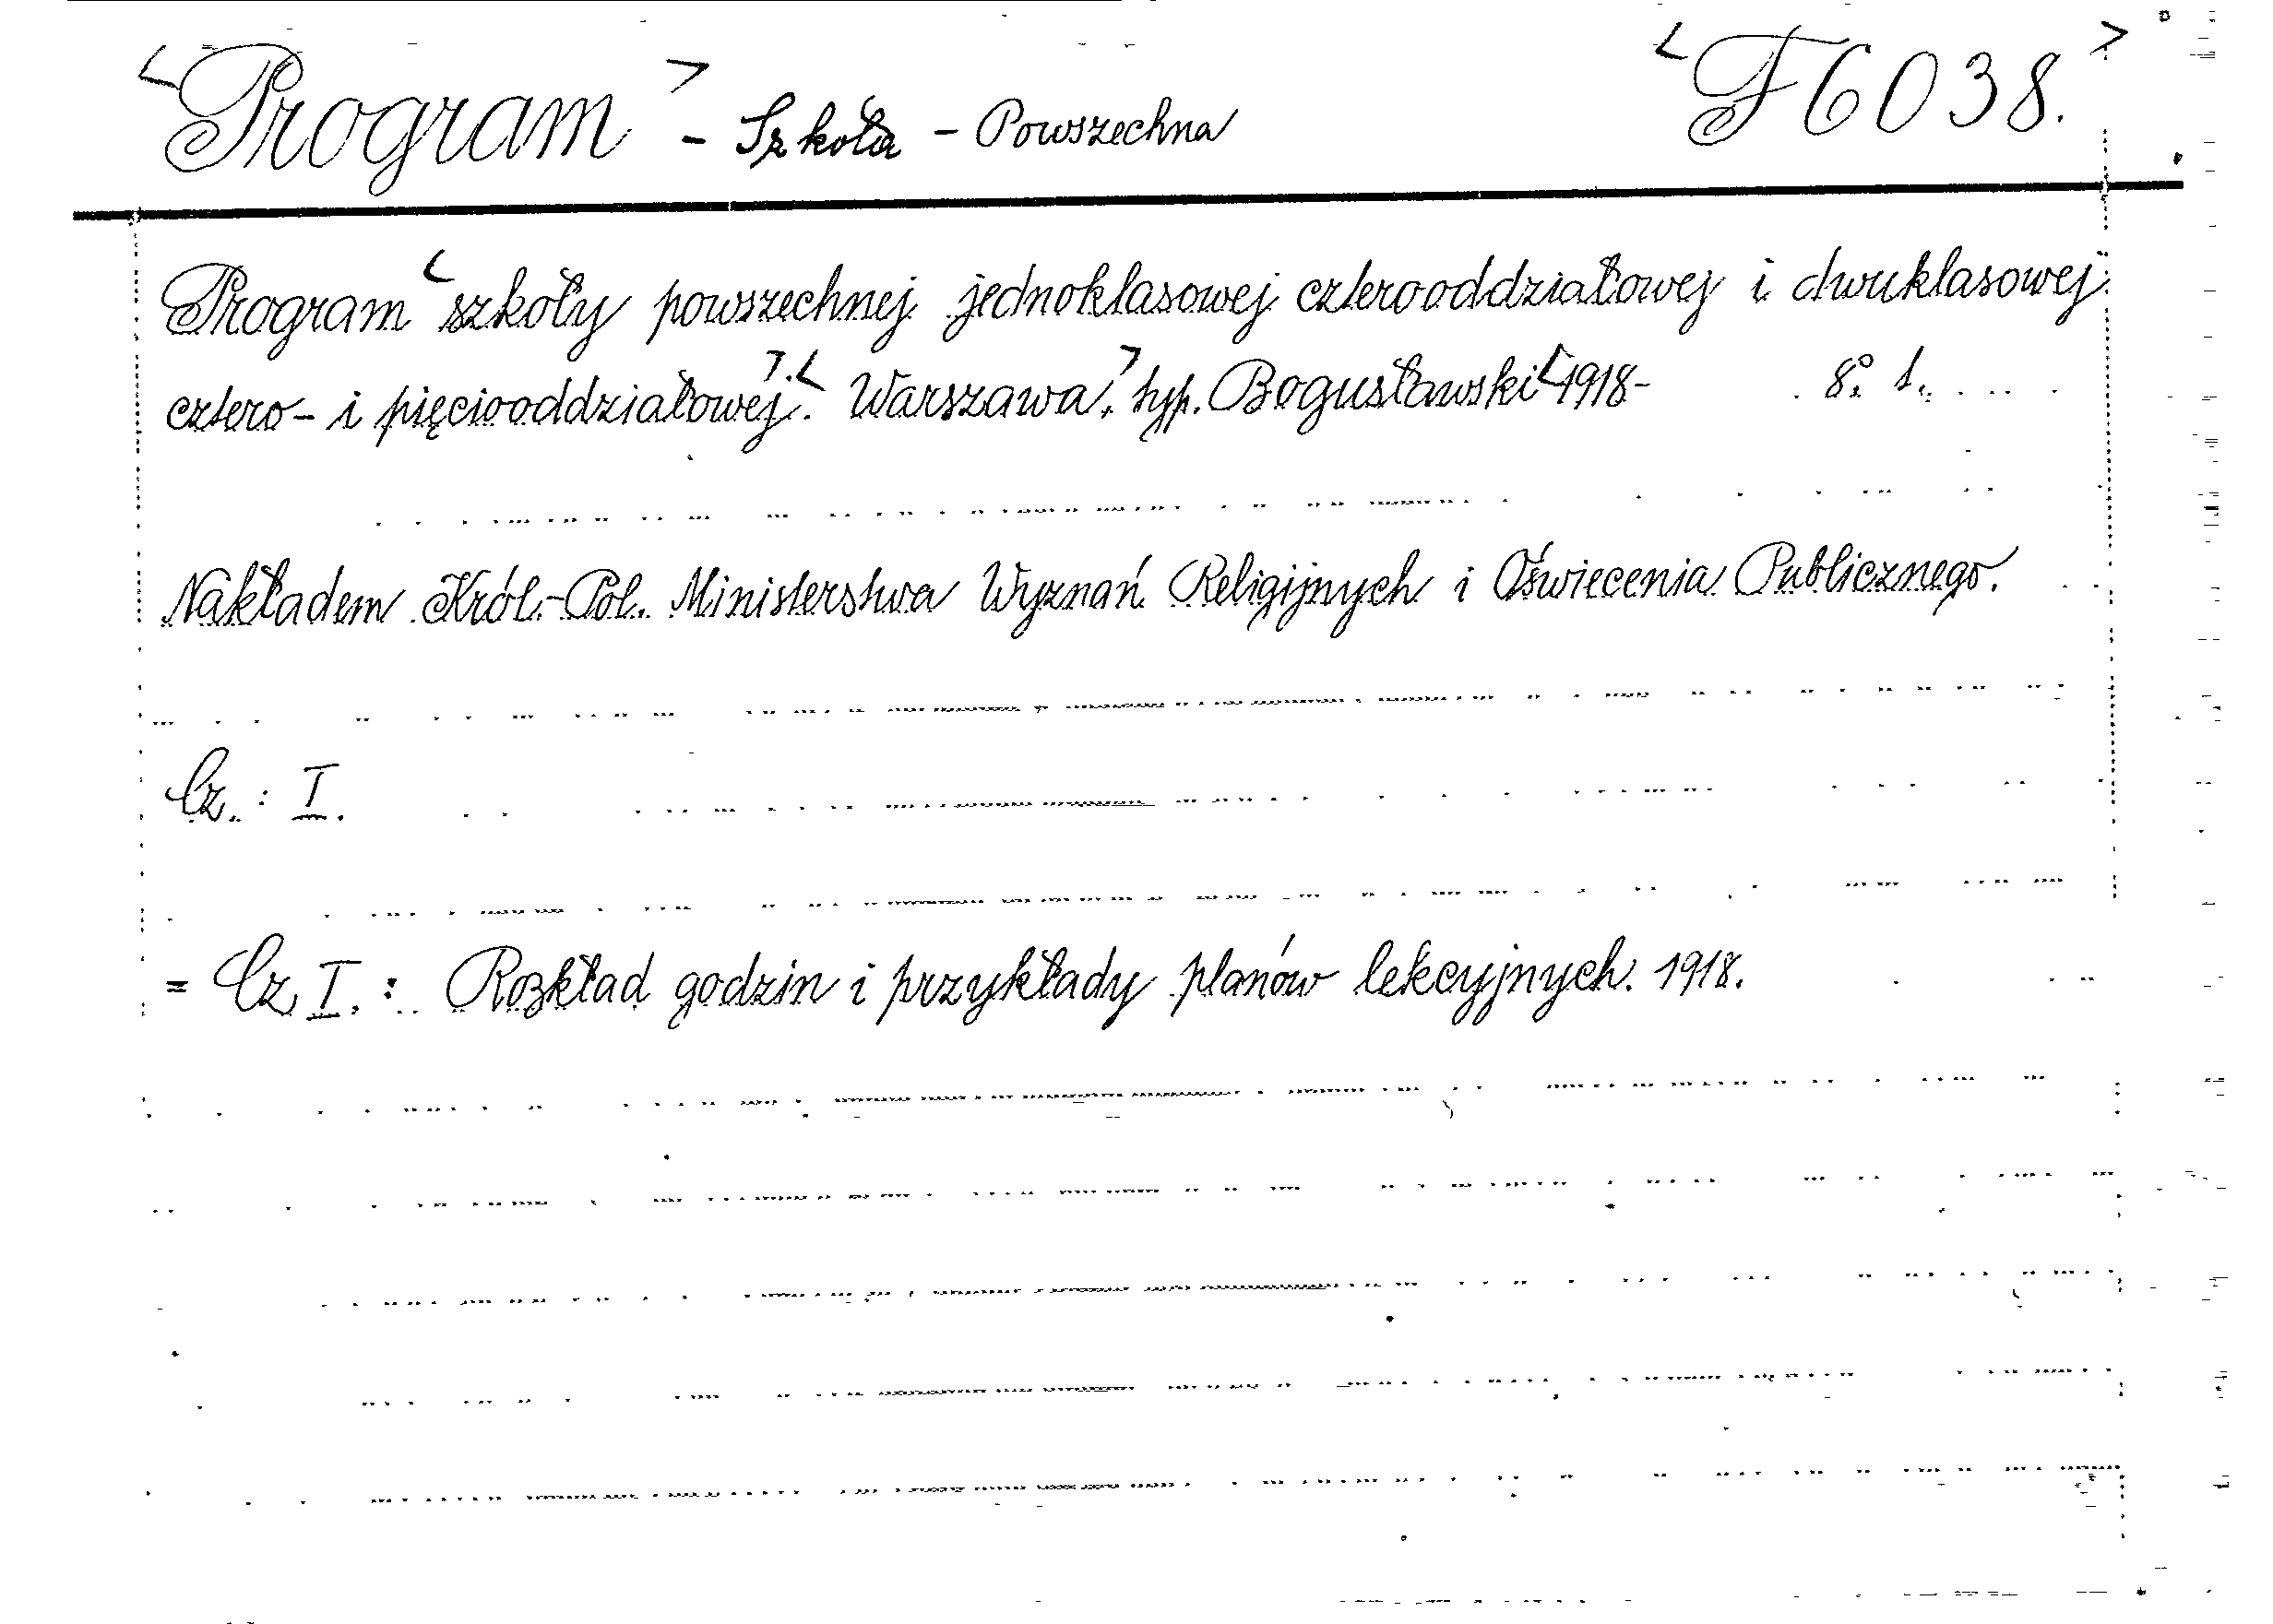 <Program> - Szkoła - Powszechna <F6038.>
Program <szkoły powszechnej jednoklasowej czterooddziałowej i dwuklasowej
cztero- i pięciooddziałowej>.< Warszawa>, typ. Bogusławski <1918- 8° 1.
Nakładem Król.-Pol. Ministerstwa Wyznań Religijnych i Oświecenia Publicznego.
Cz.: I.
= Cz I.: Rozkład godzin i przykłady planów lekcyjnych. 1918.